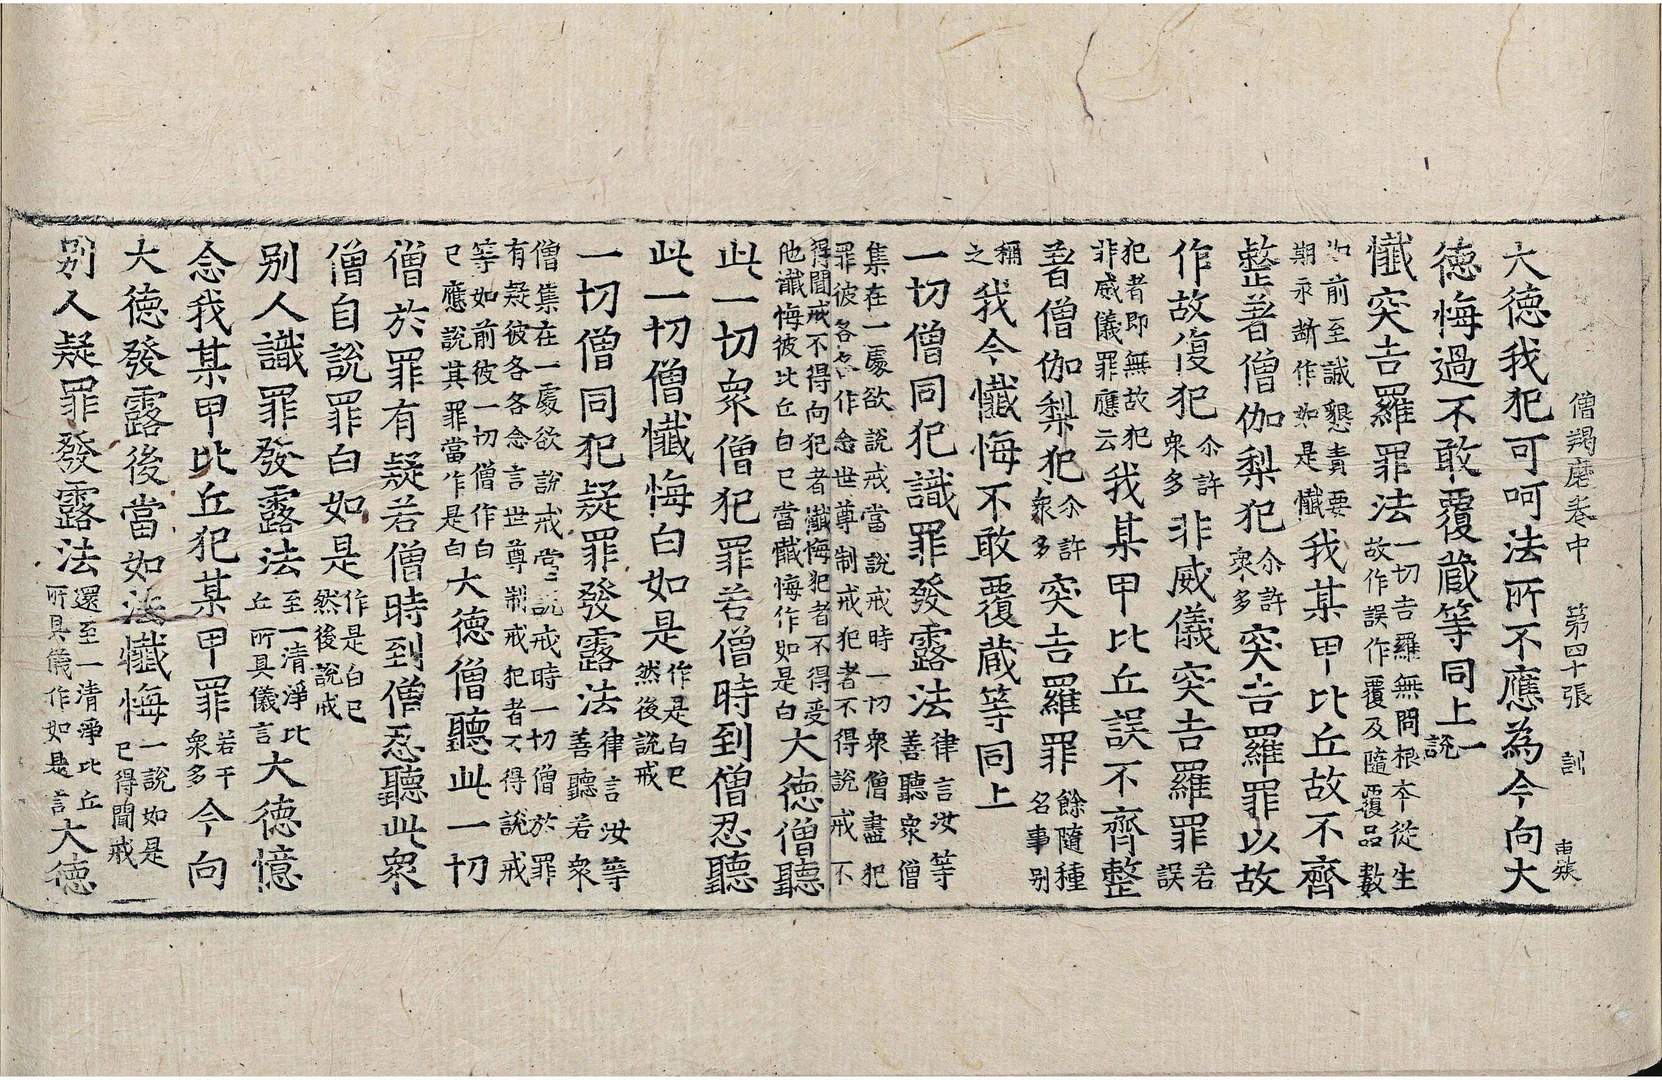 僧羯磨卷中 第四十張 訓
大德我犯可呵法所不應為今向大
德悔過不敢覆蔵等同上一說
懺突吉羅罪法一切吉羅無問根本從生故作誤作覆及隨覆品數
如前至誠懇責要期永斷作如是懺我某甲比丘故不齊
整著僧伽梨犯尒許衆多突吉羅罪以故
作故復犯尒許衆多非威儀突吉羅罪若誤
犯者即無故犯非威儀罪應云我某甲比丘誤不齊整
著僧伽梨犯尒許衆多突吉羅罪餘隨種名事別
稱之我今懺悔不敢覆蔵等同上
一切僧同犯識罪發露法律言汝等善聽衆僧
集在一處欲說戒當說戒時一切衆僧盡犯罪彼各各作念世尊制戒犯者不得說戒不
得聞戒不得向犯者懺悔犯者不得受他懺悔彼比丘白已當懺悔作如是白大德僧聽
此一切衆僧犯罪若僧時到僧忍聽
此一切僧懺悔白如是作是白已然後說戒
一切僧同犯疑罪發露法律言汝等善聽若衆
僧集在一處欲說戒當說戒時一切僧於罪有疑彼各各念言世尊制戒犯者不得說戒
等如前彼一切僧作白已應說其罪當作是白大德僧聽此一切
僧於罪有疑若僧時到僧忍聽此衆
僧自說罪白如是作是白已然後說戒
別人識罪發露法至一清淨比丘所具儀言大德憶
念我某甲比丘犯某甲罪若干衆多今向
大德發露後當如法懺悔一說如是已得聞戒
別人疑罪發露法還至一清淨比丘所具儀作如是言大德